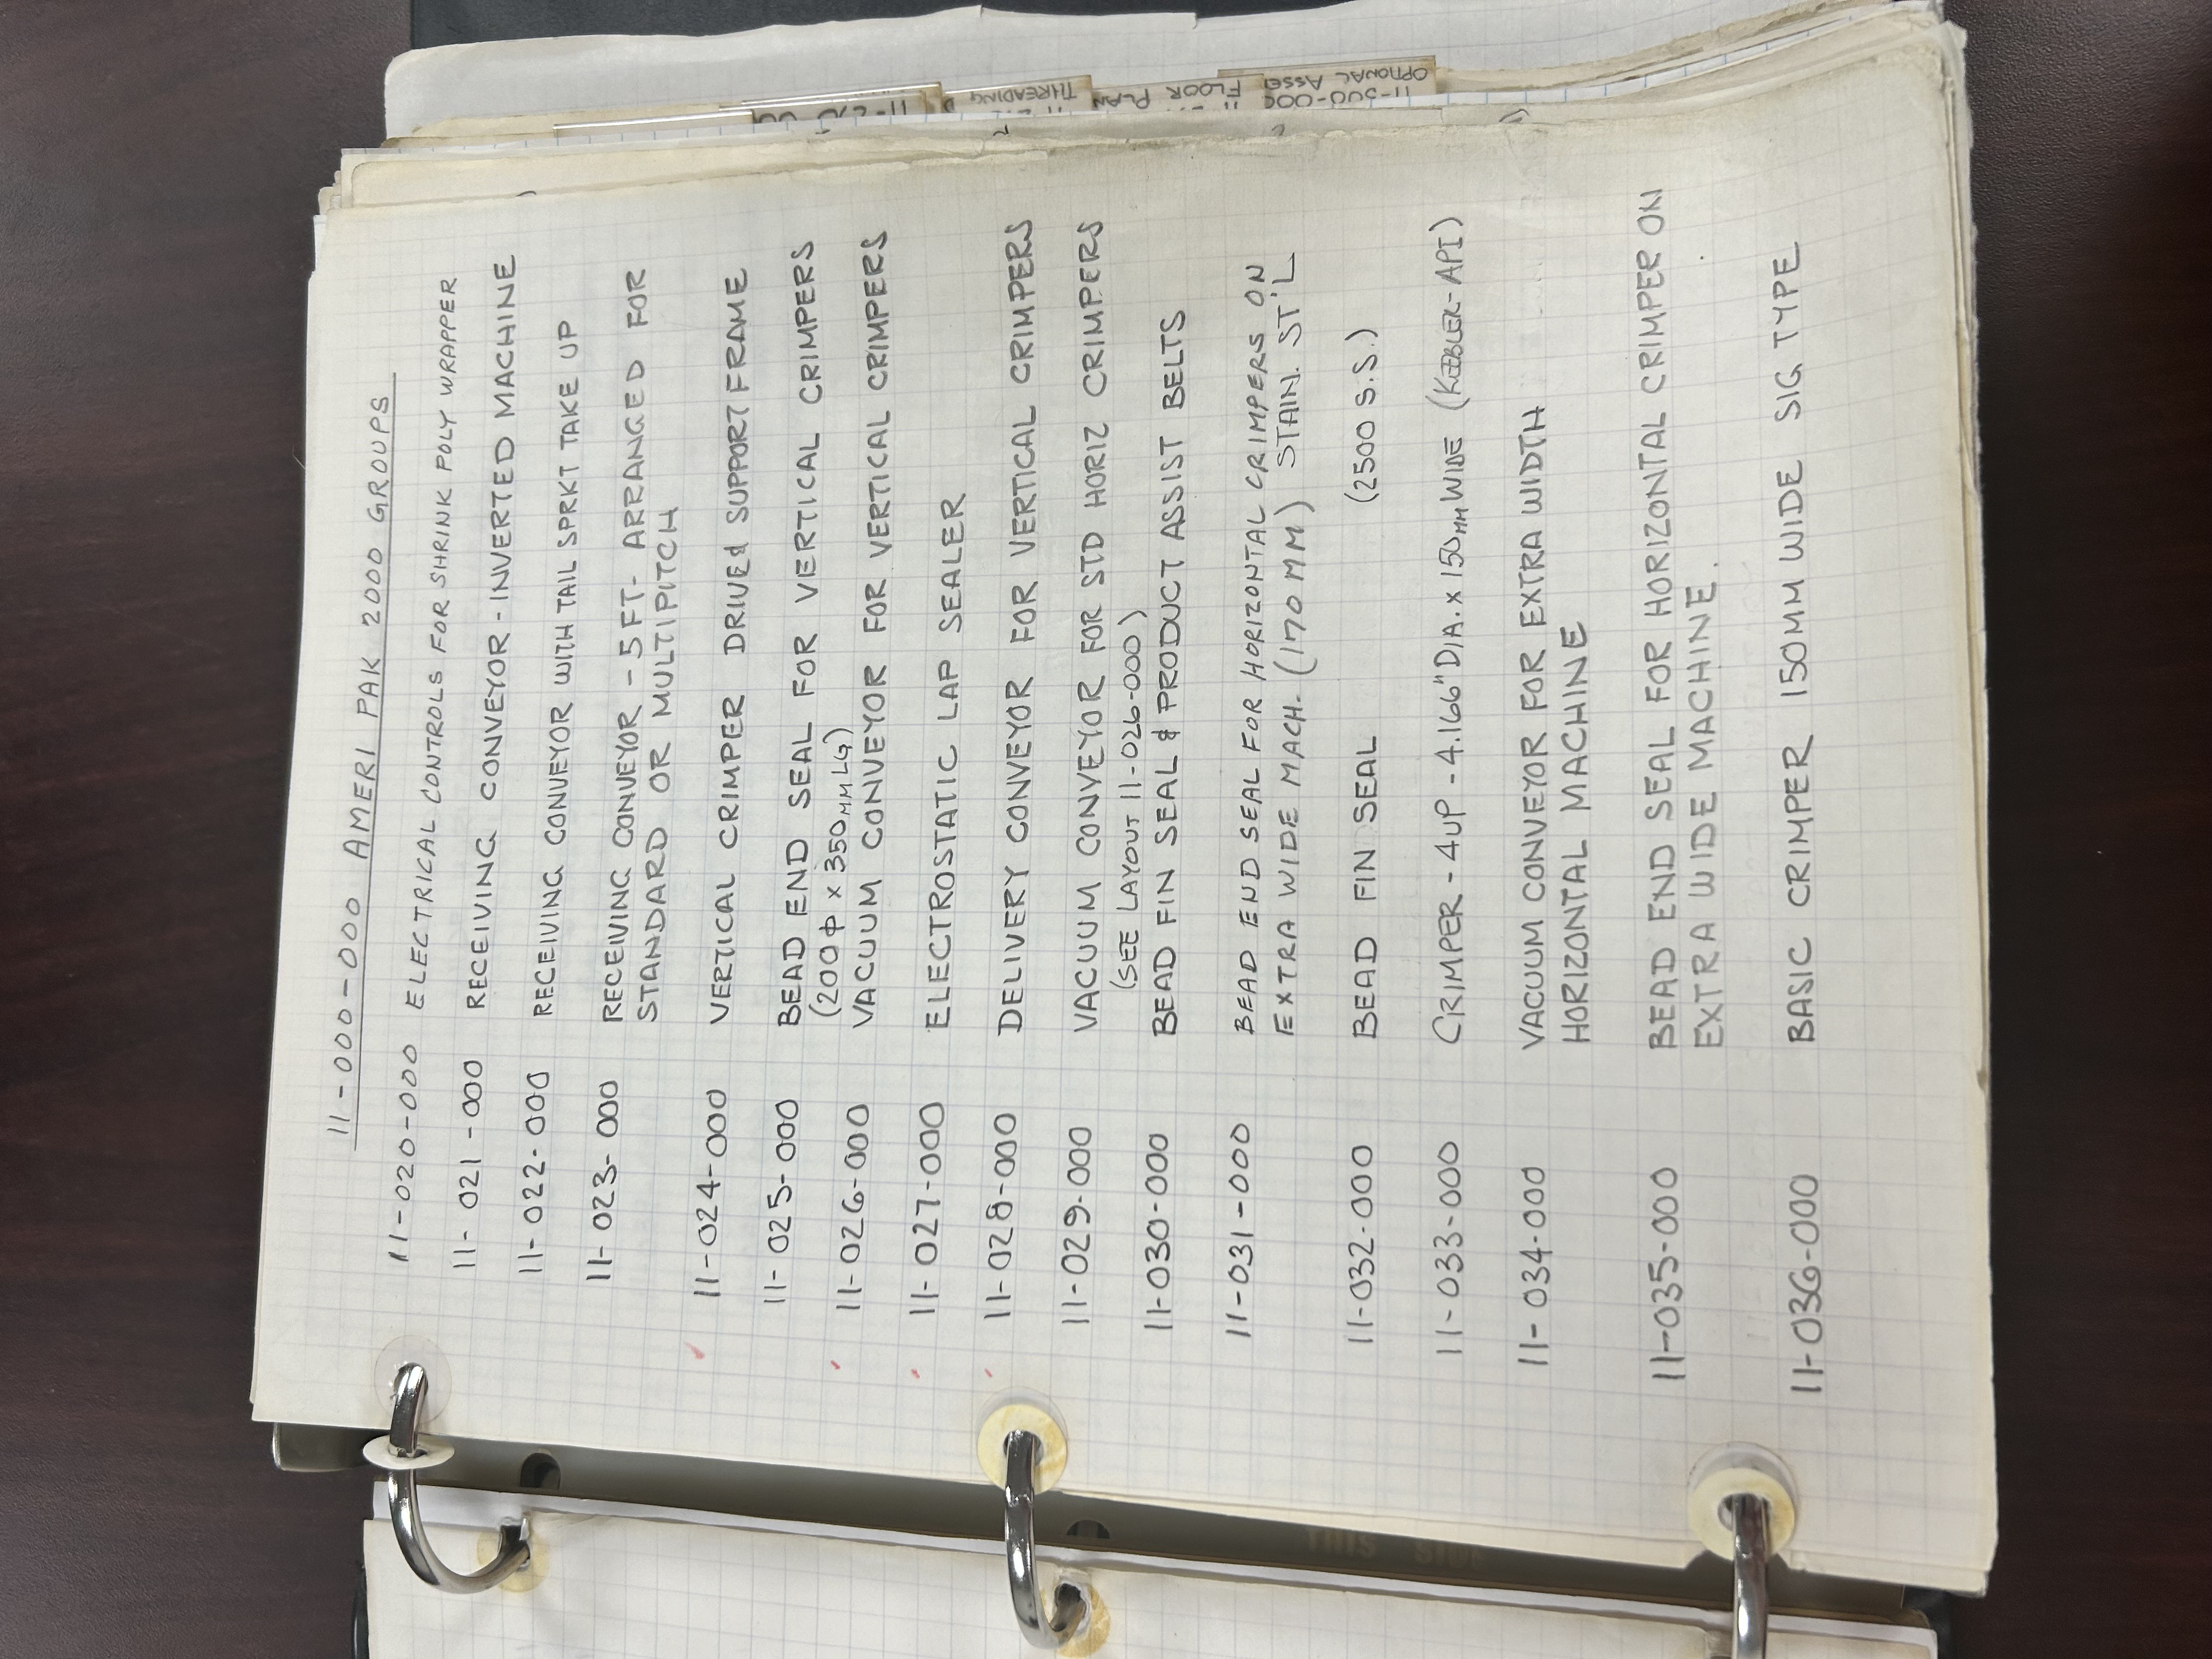 11-000-000 AMERI PAK 2000 GROUPS
11-020-000 ELECTRICAL CONTROLS FOR SHRINK POLY WRAPPER
11-021-000 RECEIVING CONVEYOR - INVERTED MACHINE
11-022-000 RECEIVING CONVEYOR WITH TAIL SPRKT TAKE UP
11-023-000 RECEIVING CONVEYOR - 5 FT- ARRANGED FOR
STANDARD OR MULTIPITCH
11-024-000 VERTICAL CRIMPER DRIVE & SUPPORT FRAME
11-025-000 BEAD END SEAL FOR VERTICAL CRIMPERS
(200 ϕ x 350 MM LG)
11-026-000 VACUUM CONVEYOR FOR VERTICAL CRIMPERS
11-027-000 ELECTROSTATIC LAP SEALER
11-028-000 DELIVERY CONVEYOR FOR VERTICAL CRIMPERS
11-029-000 VACUUM CONVEYOR FOR STD HORIZ CRIMPERS
(SEE LAYOUT 11-026-000)
11-030-000 BEAD FIN SEAL & PRODUCT ASSIST BELTS
11-031-000 BEAD END SEAL FOR HORIZONTAL CRIMPERS ON
EXTRA WIDE MACH. (170 MM) STAIN. ST'L
11-032-000 BEAD FIN SEAL (2500 S.S.)
11-033-000 CRIMPER - 4UP - 4.166" DIA. x 150 MM WIDE (KEEBLER-API)
11-034-000 VACUUM CONVEYOR FOR EXTRA WIDTH
HORIZONTAL MACHINE
11-035-000 BEAD END SEAL FOR HORIZONTAL CRIMPER ON
EXTRA WIDE MACHINE.
11-036-000 BASIC CRIMPER 150MM WIDE SIG TYPE
THREADING
FLOOR PLAN
11-500-000
OPTIONAL ASSE